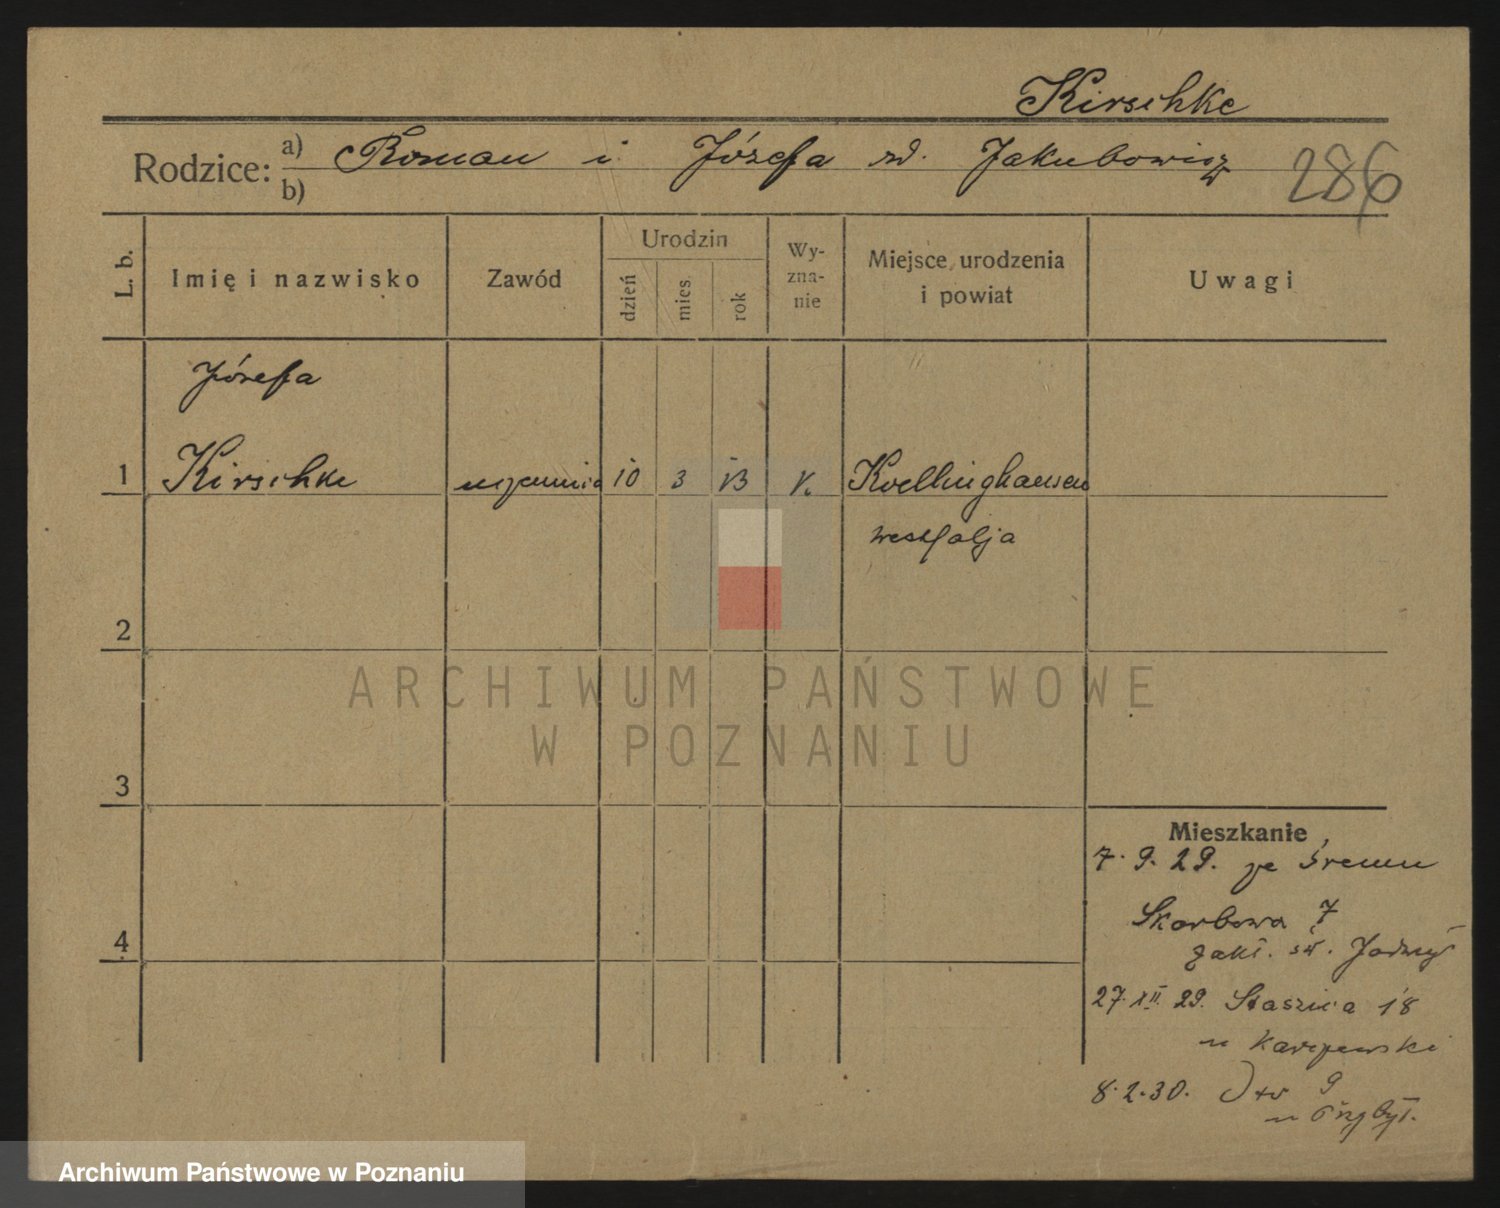 Kirschke
Rodzice: a) Roman i Józefa zd. Jakubowicz
b)
286
L. b.
Imię i nazwisko
Zawód
Urodzin
dzień
mies.
rok
Wy-
zna-
nie
Miejsce urodzenia
i powiat
Uwagi
Józefa
1 Kirschke uczennica 10 3 13 K. Koellinghausen
Westfalja
2
ARCHIWUM PAŃSTWOWE
W POZNANIU
3
Mieszkanie
7. 9. 29. ze Śremu
4
Skarbowa 7
zakł. św. Jadwigi
27. XII. 29. Staszica 18
u
8. 2. 30. 9
u
Archiwum Państwowe w Poznaniu